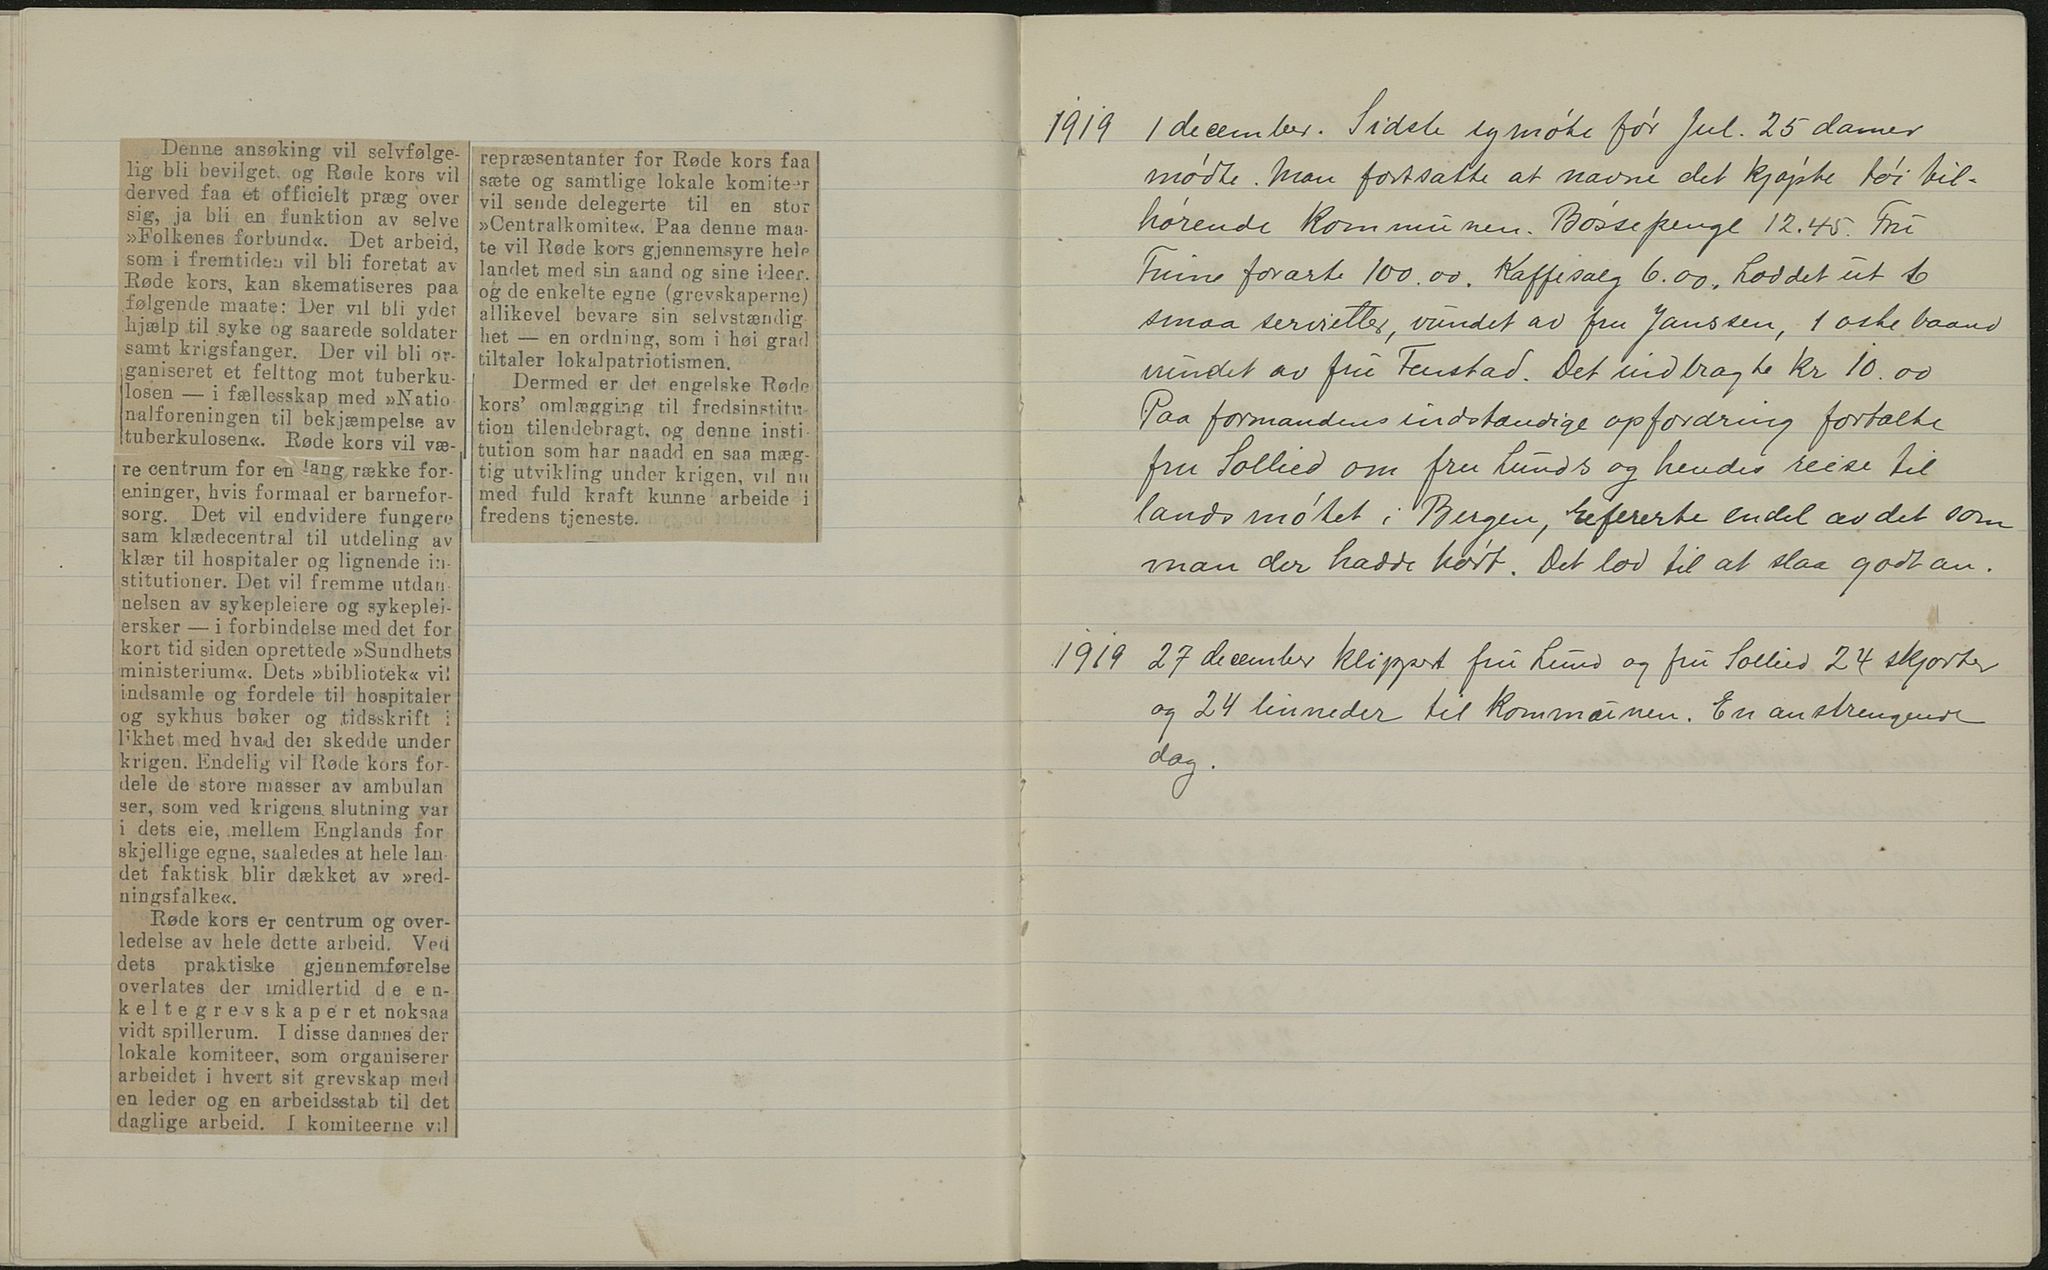 Denne ansøking vil selvfølge-
lig bli bevilget, og Røde kors vil
derved faa et officielt præg over
sig, ja bli en funktion av selve
»Folkenes forbund«. Det arbeid,
som i fremtiden vil bli foretat av
Røde kors, kan skematiseres paa
følgende maate: Der vil bli ydet
hjælp til syke og saarede soldater
samt krigsfanger. Der vil bli or-
ganiseret et felttog mot tuberku-
losen — i fællesskap med »Natio-
nalforeningen til bekjæmpelse av
tuberkulosen«. Røde kors vil væ-
re centrum for en lang række for-
eninger, hvis formaal er barnefor-
sorg. Det vil endvidere fungere
sam klædecentral til utdeling av
klær til hospitaler og lignende in-
stitutioner. Det vil fremme utdan-
nelsen av sykepleiere og sykeplei-
ersker — i forbindelse med det for
kort tid siden oprettede »Sundhets
ministerium«. Dets »bibliotek« vil
indsamle og fordele til hospitaler
og sykhus bøker og tidsskrift i
likhet med hvad der skedde under
krigen. Endelig vil Røde kors for-
dele de store masser av ambulan
ser, som ved krigens slutning var
i dets eie, mellem Englands for
skjellige egne, saaledes at hele lan-
det faktisk blir dækket av »red-
ningsfalke«.
Røde kors er centrum og over-
ledelse av hele dette arbeid. Ved
dets praktiske gjennemførelse
overlates der imidlertid de en-
kelte grevskaper et noksaa
vidt spillerum. I disse dannes der
lokale komiteer, som organiserer
arbeidet i hvert sit grevskap med
en leder og en arbeidsstab til det
daglige arbeid. I komiteerne vil
repræsentanter for Røde kors faa
sæte og samtlige lokale komiteer
vil sende delegerte til en stor
»Centralkomite«. Paa denne maa-
te vil Røde kors gjennemsyre hele
landet med sin aand og sine ideer,
og de enkelte egne (grevskaperne)
allikevel bevare sin selvstændig
het — en ordning, som i høi grad
tiltaler lokalpatriotismen.
Dermed er det engelske Røde
kors' omlægging til fredsinstitu-
tion tilendebragt, og denne insti-
tution som har naadd en saa mæg-
tig utvikling under krigen, vil nu
med fuld kraft kunne arbeide i
fredens tjeneste.
1919 1 december. Sidste symøte før Jul. 25 damer
mødte. Man fortsatte at navne det kjøpte tøi til-
hørende Kommunen. Bøssepenge 12.45. Fru
Fuine forærte 100.00. Kaffesalg 6.00. Loddet ut 6
smaa servietter, vundet av fru Janssen, 1 oste baand
vundet av fru Fenstad. Det indbragte kr 10.00
Paa formandens indstændige opfordring fortalte
fru Sollied om fru Lunds og hendes reise til
landsmøtet i Bergen, refererte endel av det som
man der hadde hørt. Det lod til at slaa godt an.
1919 27 december klippet fru Lund og fru Sollied 24 skjorter
og 24 linneder til Kommunen. En anstrengende
dag.